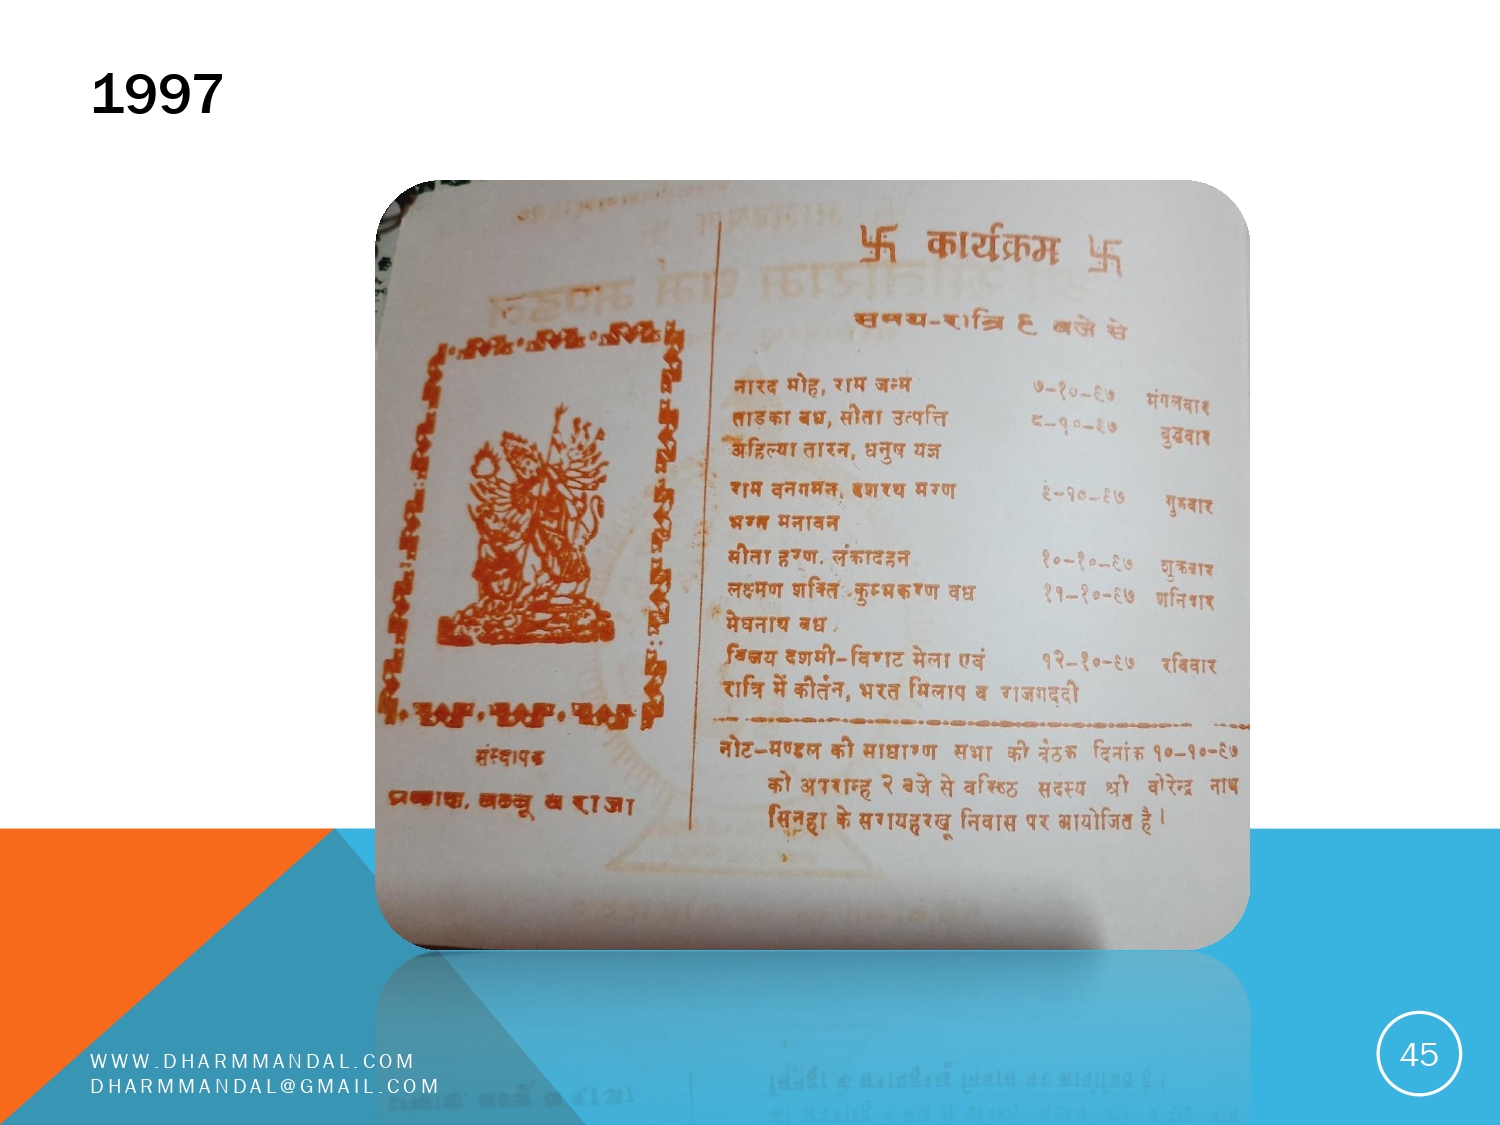 1997
卐 कार्यक्रम 卐
समय-रात्रि ६ बजे से
नारद मोह, राम जन्म ७-१०-६७ मंगलवार
ताडका बध, सीता उत्पत्ति ८-१०-६७ बुद्धवार
अहिल्या तारन, धनुष यज्ञ
राम वनगमन, दशरथ मरण ६-१०-६७ गुरुवार
भरत मनावन
सीता हरण, लंकादहन १०-१०-६७ शुक्रवार
लक्ष्मण शक्ति, कुम्भकरण वध ११-१०-६७ शनिवार
मेघनाथ बध
विजय दशमी-विराट मेला एवं १२-१०-६७ रविवार
रात्रि में कीर्तन, भरत मिलाप व राजगद्दी
नोट-मण्डल की साधारण सभा की बैठक दिनांक १०-१०-६७
को अपरान्ह २ बजे से वरिष्ठ सदस्य श्री वीरेन्द्र नाथ
सिनहा के सरायहरखू निवास पर आयोजित है।
संस्थापक
प्रकाश, बब्बू व राजा
WWW.DHARMMANDAL.COM
DHARMMANDAL@GMAIL.COM
45